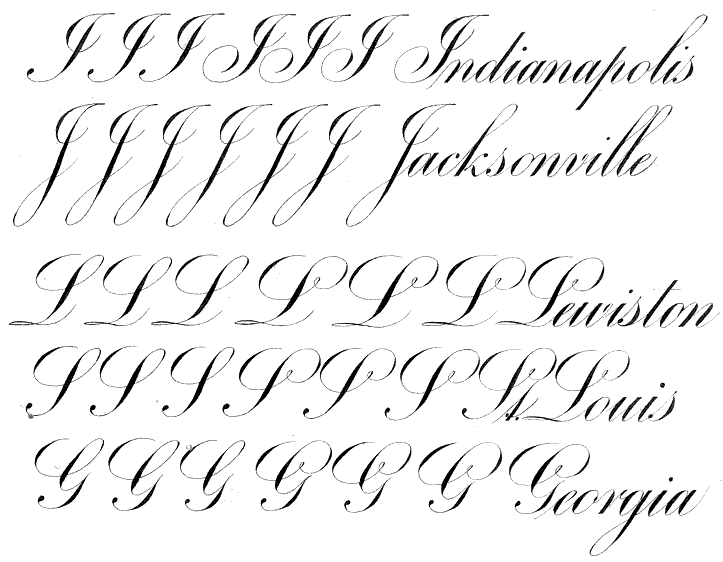 I I I I I I Indianapolis
J J J J J J Jacksonville
L L L L L L Lewiston
S S S S S S St. Louis
G G G G G G Georgia